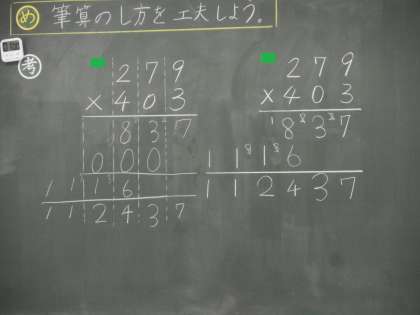 め 筆算のし方を工夫しよう。
考
279
×403
837
000
1116
112437
279
×403
837
1116
112437